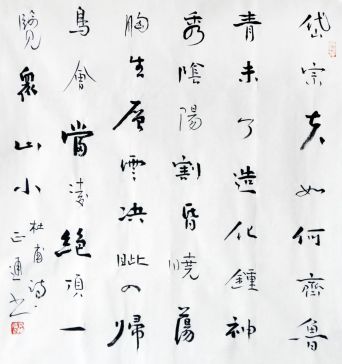 岱宗夫如何齊魯
青未了造化鍾神
秀陰陽割昏曉蕩
胸生层雲决眦入歸
鳥會當凌絕頂一
覽衆山小
杜甫詩
正通书